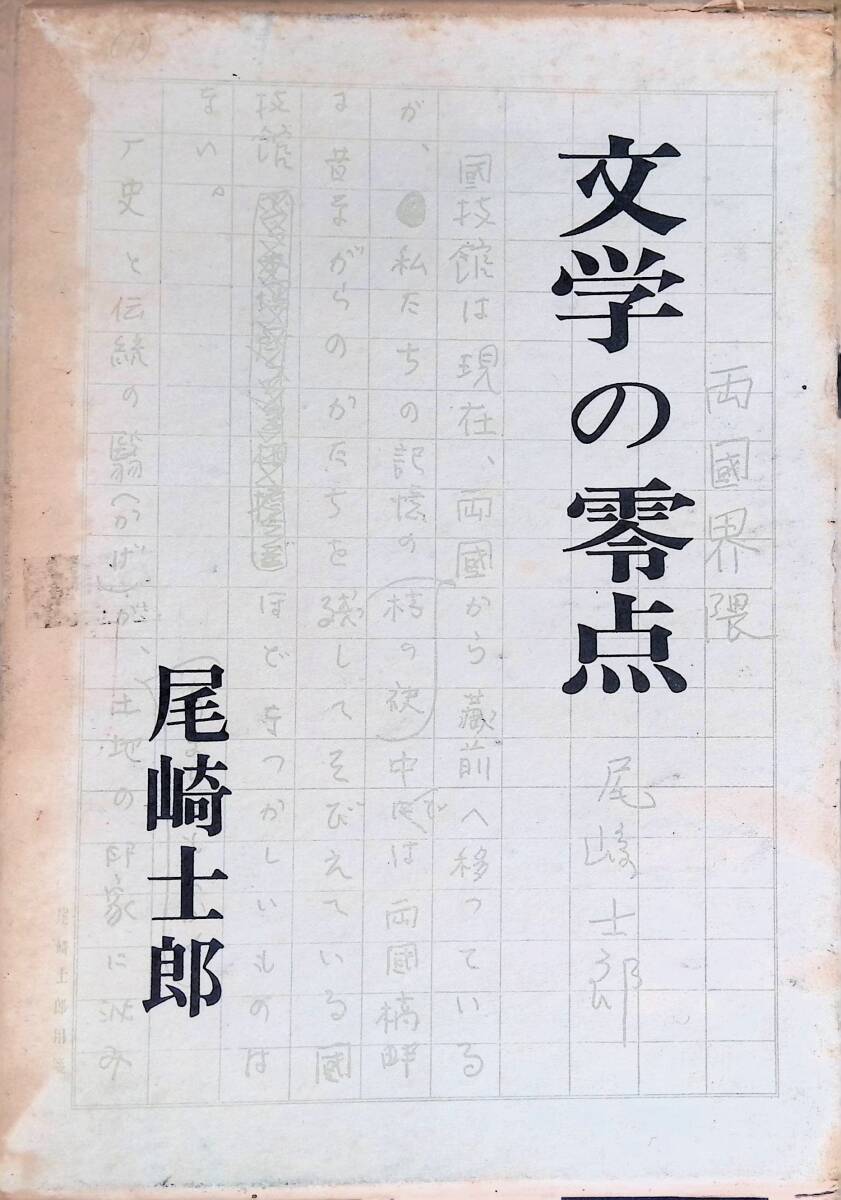 文学の零点
尾崎士郎
両國界隈
尾崎士郎
國技館は現在、両國から蔵前へ移っている
が、私たちの記憶の中では両國橋畔
は昔ながらのかたちを残してそびえている國
技館ほどなつかしいものは
ない。
史と伝統の翳(かげ)が、土地の家に沁み